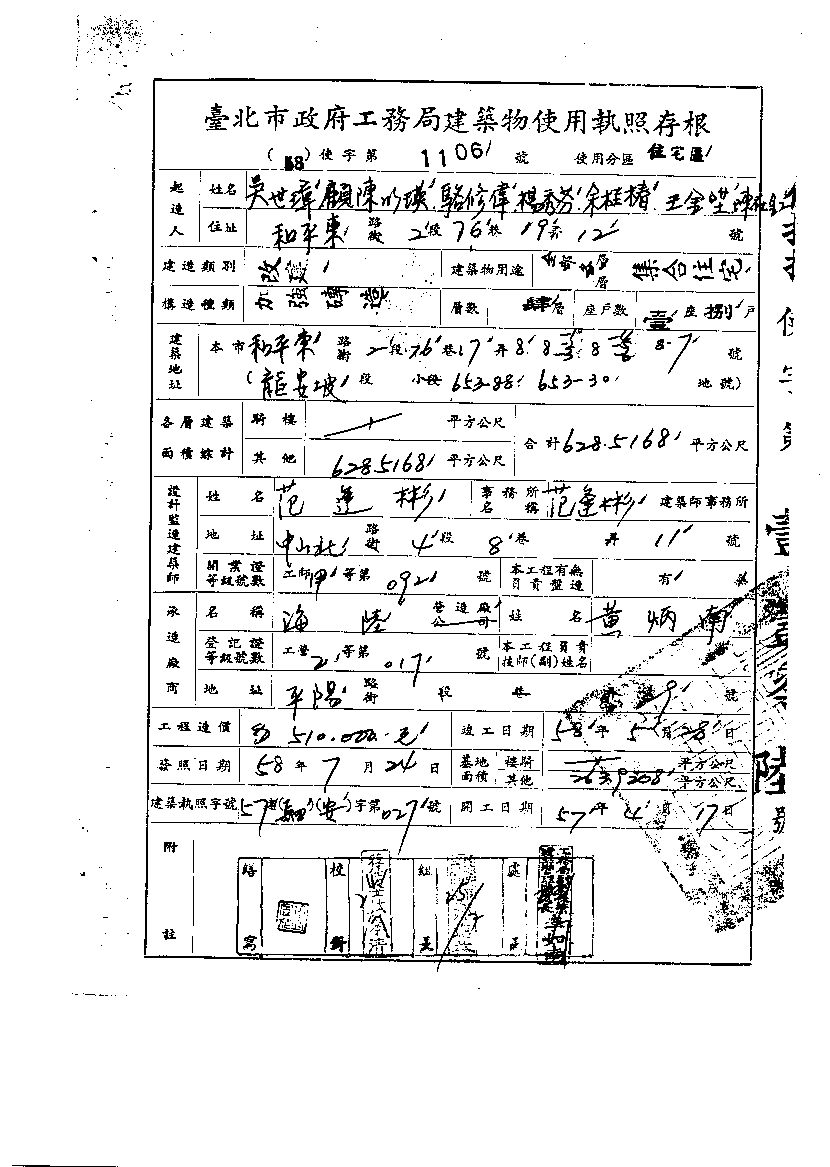 臺北市政府工務局建築物使用執照存根
(58)使字第 1106 號 使用分區 住宅區
起造人 姓名 吳世瑋 顧陳 瑛 駱修偉 楊秀芬 余桂椿 王金 陳
住址 和平東 路街 2 段 76 巷 19 弄 12 號
建造類別 改建 建築物用途 層 集合住宅
構造種類 加強磚造 層數 肆層 座戶數 壹座 捌戶
建築地址 本市 和平東 路街 2 段 76 巷 17 弄 8 8 8 8-7 號
(龍安坡 段 小段 653-88 653-30 地號)
各層建築面積綜計 騎樓 平方公尺 合計 628.5168 平方公尺
其他 628.5168 平方公尺
設計監造建築師 姓名 范逢彬 事務所名稱 范逢彬 建築師事務所
地址 中山北 路街 4 段 8 巷 弄 11 號
開業證等級號數 工師甲等第 092 號 本工程有無負責監造 有 無
承造廠商 名稱 海陸 營造廠公司 姓名 黃炳南
登記證等級號數 工營 乙等第 017 號 本工程負責技師(副)姓名
地址 平陽 路街 段 巷 29 號
工程造價 510.000.元 竣工日期 58 年 5 月 28 日
發照日期 58 年 7 月 24 日 基地面積 樓騎 平方公尺
其他 263.9208 平方公尺
建築執照字號 57 (安)字第 027 號 開工日期 57 年 4 月 17 日
附註
繕寫 校對 組長 處正
使字第
壹
陸
號